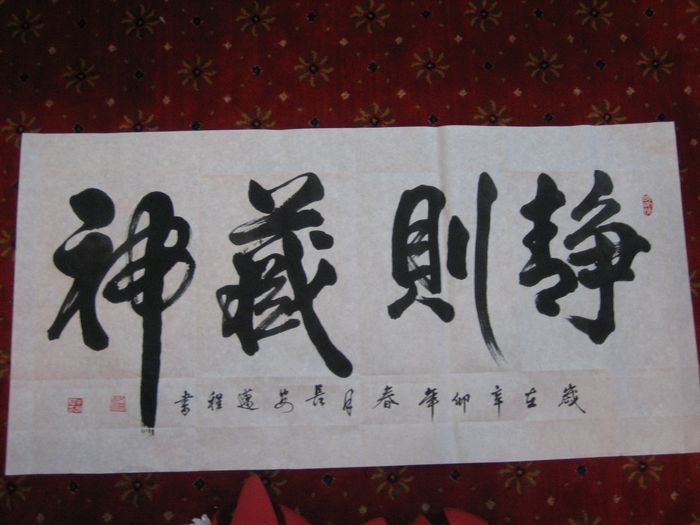 静則藏神
歲在辛卯年春月長安蓮程書